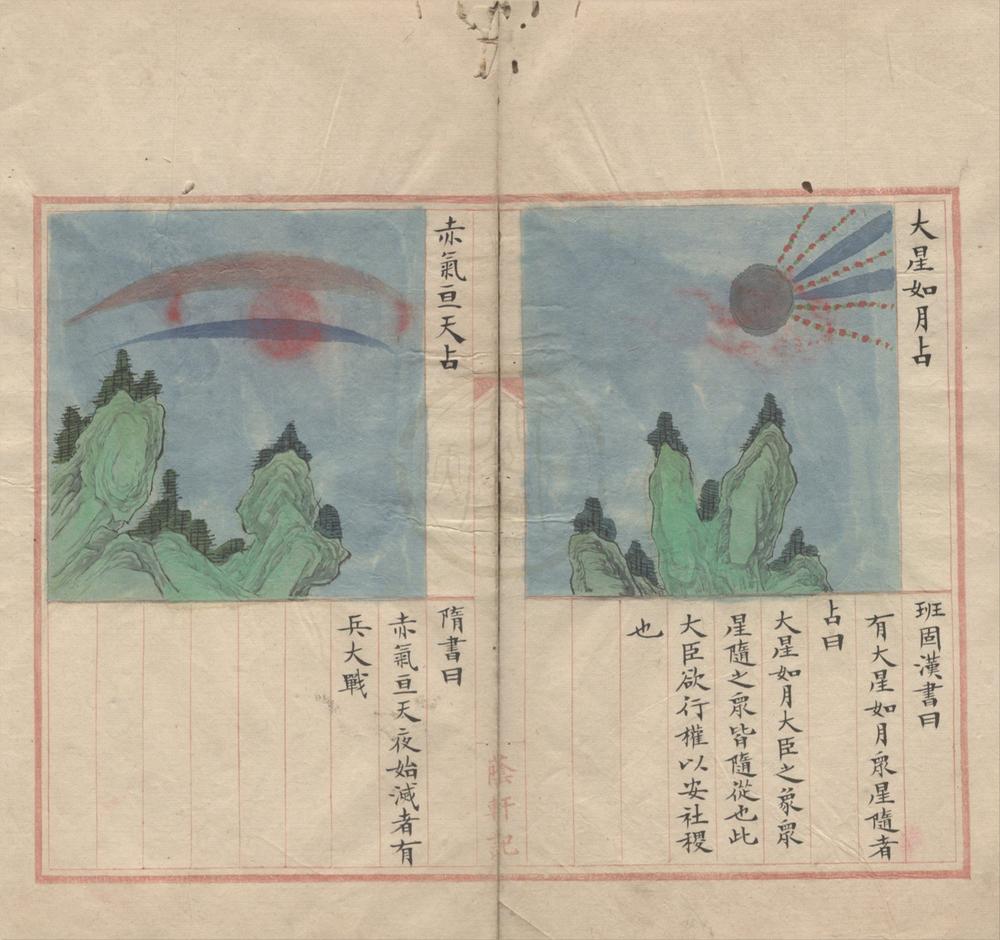 大星如月占
班固漢書曰
有大星如月衆星隨者
占曰
大星如月大臣之象衆
星隨之衆皆隨從也此
大臣欲行權以安社稷
也
赤氣亘天占
隋書曰
赤氣亘天夜始滅者有
兵大戰
蔭軒記